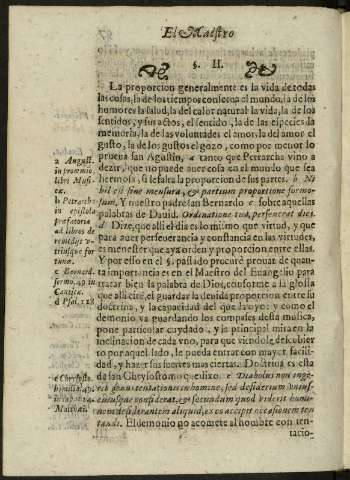 El Maestro
§. II.
La proporcion generalmente es la vida de todas
las cosas, la de los tiempos conserua al mundo, la de los
humores la salud, la del calor natural la vida, la de los
sentidos, y sus actos, el sentido, la de las especies la
memoria, la de las voluntades el amor, la del amor el
gusto, la de los gustos el gozo, como por menor lo
prueua san Agustin, a tanto que Petrarcha vino a
dezir, que no puede auer cosa en el mundo que sea
hermosa, si le falta la proporcion de sus partes. b Ni
hil est sine mensura, & partium proportione formo-
sum. Y nuestro padre san Bernardo c sobre aquellas
palabras de Dauid. Ordinatione tua perseuerat dies.
d Dize, que alli el dia es lo mismo que virtud, y que
para auer perseuerancia y constancia en las virtudes,
es menester que aya orden y proporcion entre ellas.
Y por esso en el §. passado procurè prouar de quan-
ta importancia es en el Maestro del Euangelio para
tratar bien la palabra de Dios, conforme a la glossa
que alli cité, el guardar la deuida proporcion entre su
doctrina, y la capacidad del que la oye: y como el
demonio va guardando los compases desta musica,
pone particular cuydado, y la principal mira en la
inclinacion de cada vno, para que viendole descubier
to por aquel lado, le pueda entrar con mayor facili-
dad, y hazer sus suertes mas ciertas. Doctrina es esta
de san Chrysostomo que dixo. e Diabolus non inge-
rit suam tentationem homine, sed desiderium vnius-
cuiusque considerat, & secundum quod viderit homi-
nem desiderantem aliquid, ex eo accipit occasionem ten
tandi. El demonio no acomete al hombre con ten-
tacio-
a August.
in proœmio
libri Musi-
cæ.
b Petrarcha
in epistola
præfatoria
ad libros de
remedijs v-
triusque for
tunæ.
c Bernard.
sermo. 49 in
Cantica.
d Psal. 118
e Chrysosto.
Matthæi.